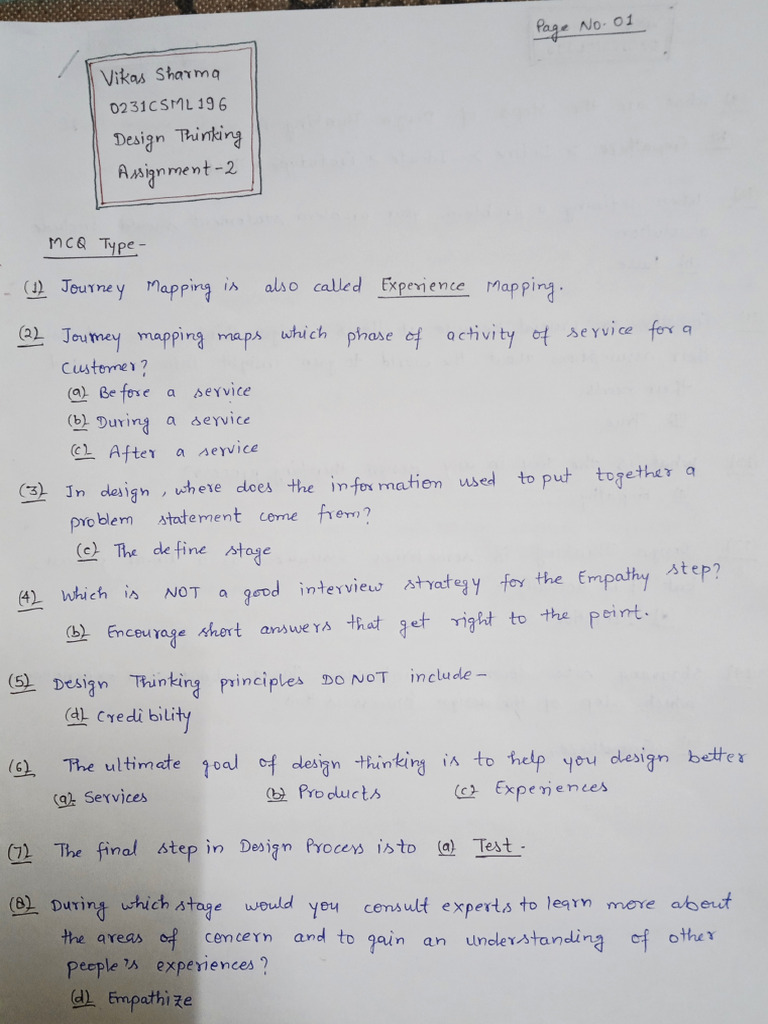 Page No. 01
Vikas Sharma
0231CSML196
Design Thinking
Assignment-2
MCQ Type-
(1) Journey Mapping is also called Experience Mapping.
(2) Journey mapping maps which phase of activity of service for a
customer?
(a) Before a service
(b) During a service
(c) After a service
(3) In design, where does the information used to put together a
problem statement come from?
(c) The define stage
(4) Which is NOT a good interview strategy for the Empathy step?
(b) Encourage short answers that get right to the point.
(5) Design Thinking principles DO NOT include-
(d) Credibility
(6) The ultimate goal of design thinking is to help you design better
(a) Services (b) Products (c) Experiences
(7) The final step in Design Process is to (a) Test.
(8) During which stage would you consult experts to learn more about
the areas of concern and to gain an understanding of other
people's experiences?
(d) Empathize